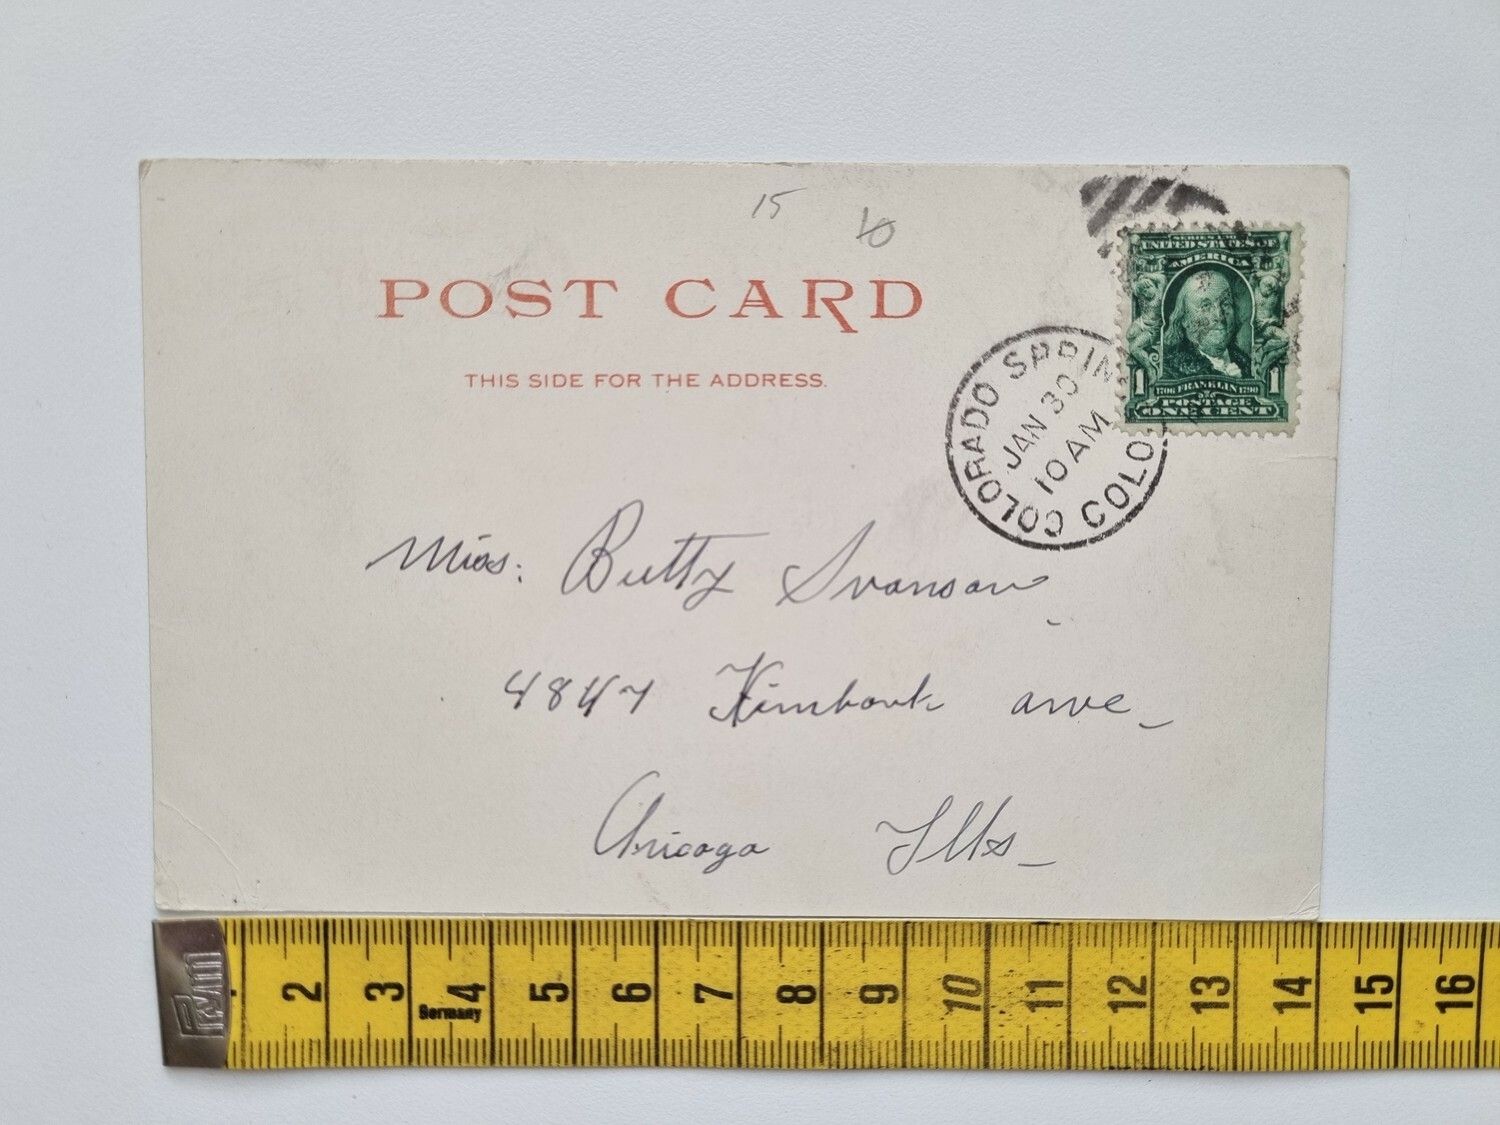 15
10
POST CARD
THIS SIDE FOR THE ADDRESS.
SERIES 1902
UNITED STATES OF
AMERICA
1 1706 FRANKLIN 1790 1
POSTAGE
ONE CENT
COLORADO SPRIN COLO.
JAN 30
10 AM
Miss. Betty Svanson
4847 Kimbark ave
Chicago Ills
2 3 4 5 6 7 8 9 10 11 12 13 14 15 16
Germany
PRYM